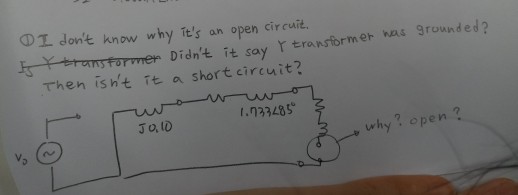 ① I don't know why it's an open circuit.
Is Y transformer Didn't it say Y transformer was grounded?
Then isn't it a short circuit?
J0.10
1.733∠85°
why? open?
V₀